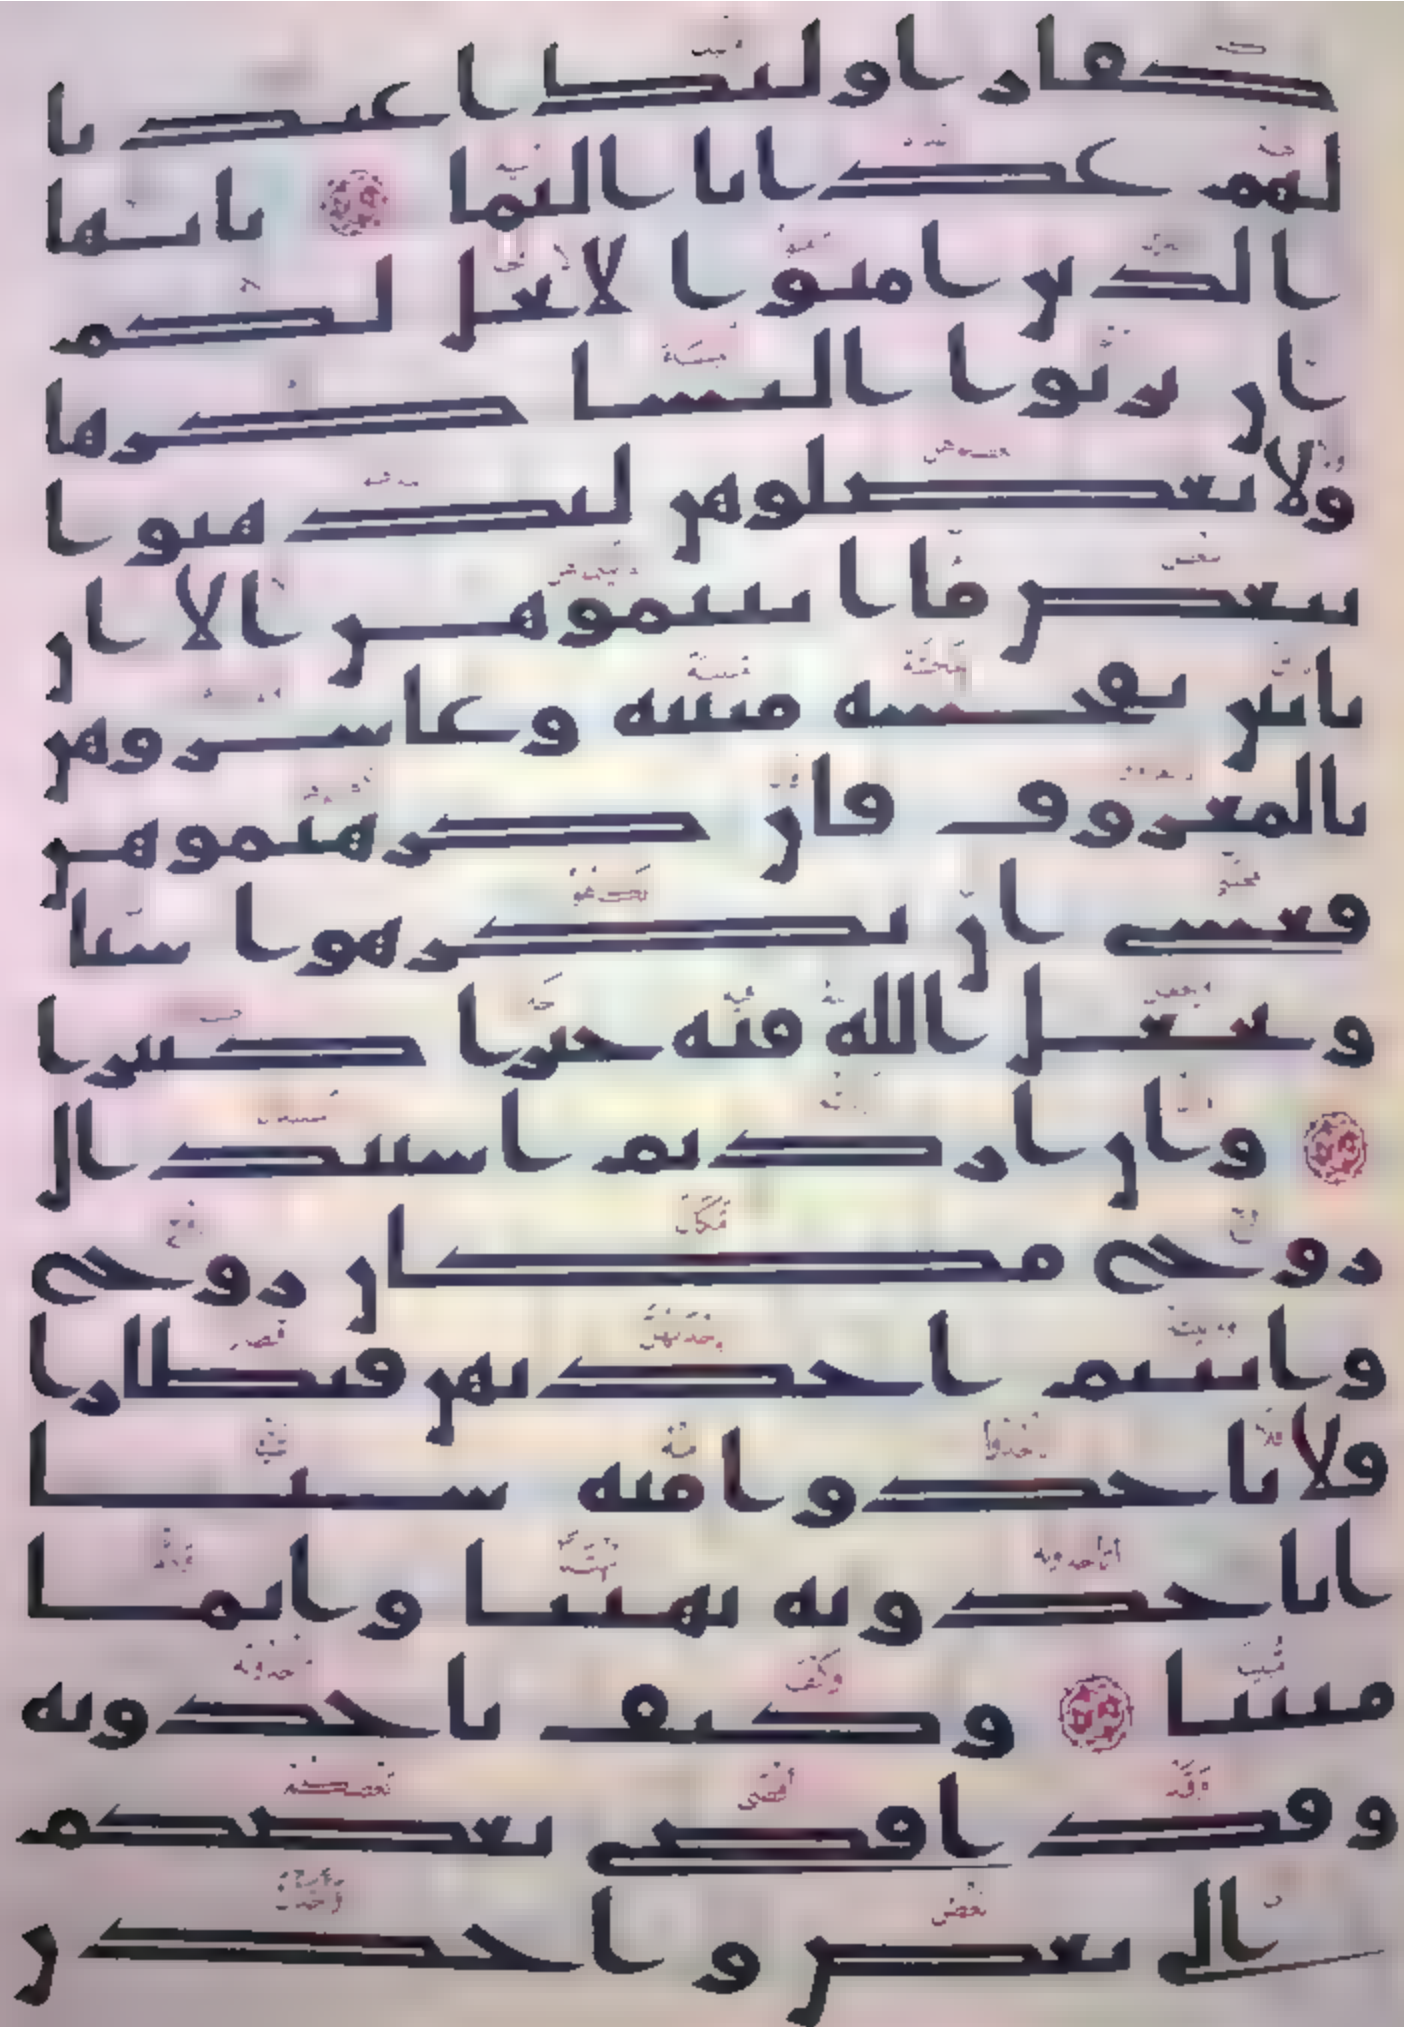 كفار اولئك اعتدنا
لهم عذابا اليما يايها
الذين امنوا لا يحل لكم
ان ترثوا النسا كرها
ولا تعضلوهن لتذهبوا
ببعض ما اتيتموهن الا ان
ياتين بفحشه مبينه وعاشروهن
بالمعروف فان كرهتموهن
فعسى ان تكرهوا شيا
ويجعل الله فيه خيرا كثيرا
وان اردتم استبدال
زوج مكان زوج
واتيتم احديهن قنطارا
فلا تاخذوا منه شيا
اتاخذونه بهتنا واثما
مبينا وكيف تاخذونه
وقد افضى بعضكم
الى بعض واخذن